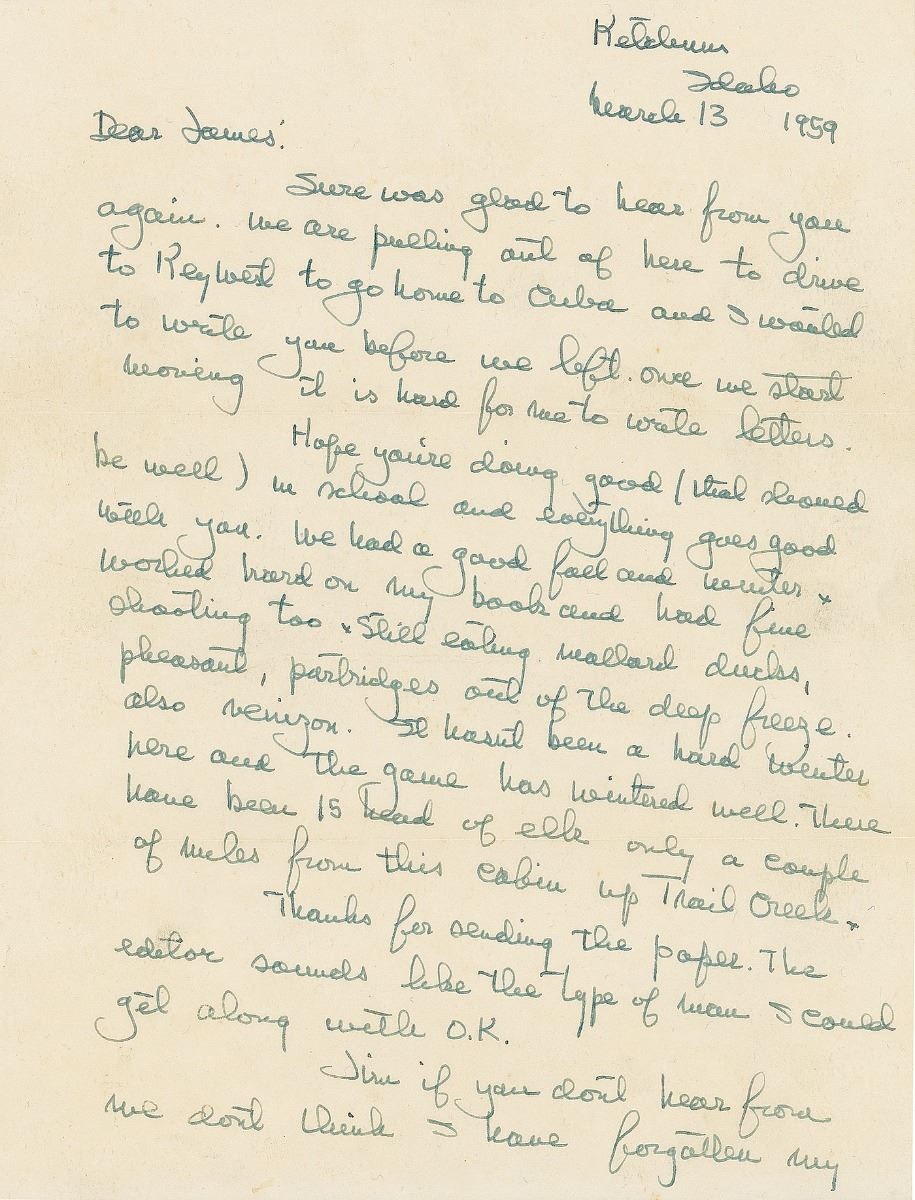 Ketchum
Idaho
March 13 1959
Dear James:
Sure was glad to hear from you
again. We are pulling out of here to drive
to Key West to go home to Cuba and I wanted
to write you before we left. Once we start
moving it is hard for me to write letters.
Hope you're doing good (that should
be well) in school and everything goes good
with you. We had a good fall and winter x
worked hard on my book and had fine
shooting too x Still eating mallard ducks,
pheasant, partridges out of the deep freeze.
also venizon. It hasnt been a hard winter
here and the game has wintered well. There
have been 15 head of elk only a couple
of miles from this cabin up Trail Creek x
Thanks for sending the paper. The
editor sounds like the type of man I could
get along with O.K.
Jim if you dont hear from
me dont think I have forgotten my